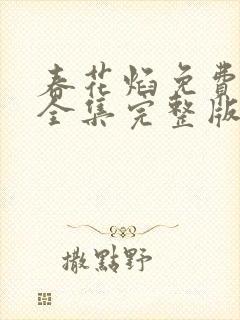 春花焰免費
全集完整版
撒點野